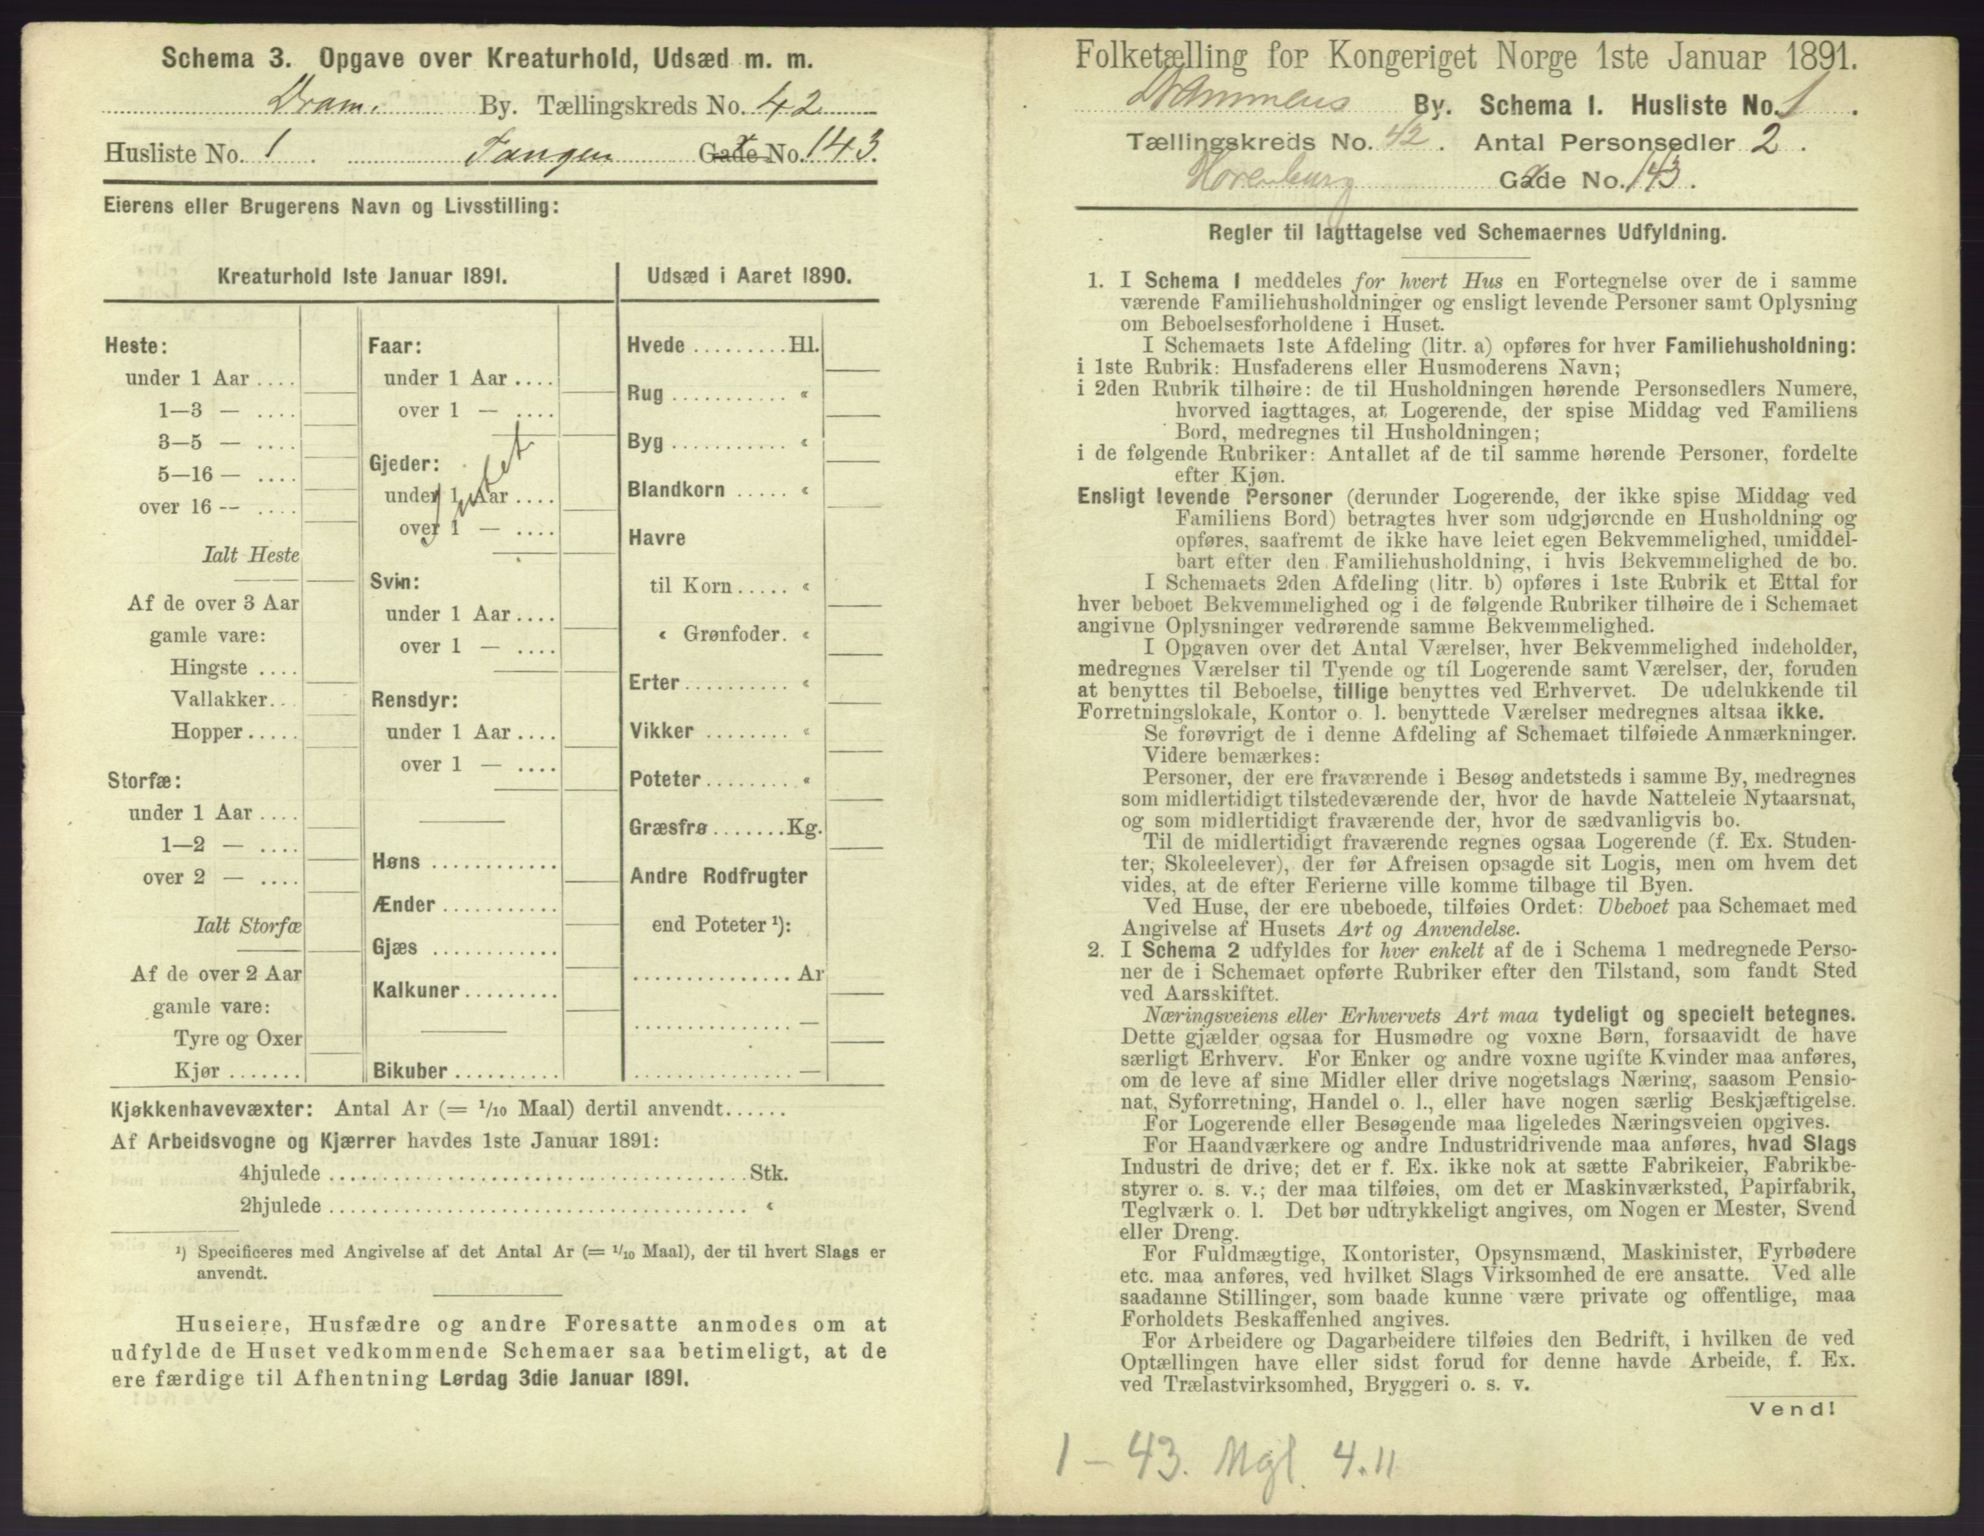 Schema 3. Opgave over Kreaturhold, Udsæd m. m.
Dram. By. Tællingskreds No. 42
Husliste No. 1. Tangen Gade No. 143.
Eierens eller Brugerens Navn og Livsstilling:
Kreaturhold 1ste Januar 1891.
Heste:
under 1 Aar ....
1—3 — ....
3—5 — ....
5—16 — ....
over 16 — ....
Ialt Heste
Af de over 3 Aar
gamle vare:
Hingste ....
Vallakker...
Hopper.....
Storfæ:
under 1 Aar ....
1—2 — ....
over 2 — ....
Ialt Storfæ
Af de over 2 Aar
gamle vare:
Tyre og Oxer
Kjør .......
Faar:
under 1 Aar ....
over 1 — ....
Gjeder:
under 1 Aar ....
over 1 — ....
Intet
Svin:
under 1 Aar ....
over 1 — ....
Rensdyr:
under 1 Aar ....
over 1 — ....
Høns ............
Ænder ...........
Gjæs ............
Kalkuner.........
Bikuber ..........
Udsæd i Aaret 1890.
Hvede .........Hl.
Rug ........... «
Byg ........... «
Blandkorn ..... «
Havre
til Korn ..... «
« Grønfoder. «
Erter.......... «
Vikker ........ «
Poteter........ «
Græsfrø.......Kg.
Andre Rodfrugter
end Poteter ¹):
...............Ar
............... —
............... —
Kjøkkenhavevæxter: Antal Ar (= 1/10 Maal) dertil anvendt......
Af Arbeidsvogne og Kjærrer havdes 1ste Januar 1891:
4hjulede ......................................Stk.
2hjulede ...................................... «
¹) Specificeres med Angivelse af det Antal Ar (= 1/10 Maal), der til hvert Slags er
anvendt.
Huseiere, Husfædre og andre Foresatte anmodes om at
udfylde de Huset vedkommende Schemaer saa betimeligt, at de
ere færdige til Afhentning Lørdag 3die Januar 1891.
Folketælling for Kongeriget Norge 1ste Januar 1891.
Drammens By. Schema 1. Husliste No. 1.
Tællingskreds No. 42. Antal Personsedler 2.
Gade No. 143.
Regler til Iagttagelse ved Schemaernes Udfyldning.
1. I Schema 1 meddeles for hvert Hus en Fortegnelse over de i samme
værende Familiehusholdninger og ensligt levende Personer samt Oplysning
om Beboelsesforholdene i Huset.
I Schemaets 1ste Afdeling (litr. a) opføres for hver Familiehusholdning:
i 1ste Rubrik: Husfaderens eller Husmoderens Navn;
i 2den Rubrik tilhøire: de til Husholdningen hørende Personsedlers Numere,
hvorved iagttages, at Logerende, der spise Middag ved Familiens
Bord, medregnes til Husholdningen;
i de følgende Rubriker: Antallet af de til samme hørende Personer, fordelte
efter Kjøn.
Ensligt levende Personer (derunder Logerende, der ikke spise Middag ved
Familiens Bord) betragtes hver som udgjørende en Husholdning og
opføres, saafremt de ikke have leiet egen Bekvemmelighed, umiddel-
bart efter den Familiehusholdning, i hvis Bekvemmelighed de bo.
I Schemaets 2den Afdeling (litr. b) opføres i 1ste Rubrik et Ettal for
hver beboet Bekvemmelighed og i de følgende Rubriker tilhøire de i Schemaet
angivne Oplysninger vedrørende samme Bekvemmelighed.
I Opgaven over det Antal Værelser, hver Bekvemmelighed indeholder,
medregnes Værelser til Tyende og til Logerende samt Værelser, der, foruden
at benyttes til Beboelse, tillige benyttes ved Erhvervet. De udelukkende til
Forretningslokale, Kontor o. l. benyttede Værelser medregnes altsaa ikke.
Se forøvrigt de i denne Afdeling af Schemaet tilføiede Anmærkninger.
Videre bemærkes:
Personer, der ere fraværende i Besøg andetsteds i samme By, medregnes
som midlertidigt tilstedeværende der, hvor de havde Natteleie Nytaarsnat,
og som midlertidigt fraværende der, hvor de sædvanligvis bo.
Til de midlertidigt fraværende regnes ogsaa Logerende (f. Ex. Studen-
ter, Skoleelever), der før Afreisen opsagde sit Logis, men om hvem det
vides, at de efter Ferierne ville komme tilbage til Byen.
Ved Huse, der ere ubeboede, tilføies Ordet: Ubeboet paa Schemaet med
Angivelse af Husets Art og Anvendelse.
2. I Schema 2 udfyldes for hver enkelt af de i Schema 1 medregnede Perso-
ner de i Schemaet opførte Rubriker efter den Tilstand, som fandt Sted
ved Aarsskiftet.
Næringsveiens eller Erhvervets Art maa tydeligt og specielt betegnes.
Dette gjælder ogsaa for Husmødre og voxne Børn, forsaavidt de have
særligt Erhverv. For Enker og andre voxne ugifte Kvinder maa anføres,
om de leve af sine Midler eller drive nogetslags Næring, saasom Pensio-
nat, Syforretning, Handel o. l., eller have nogen særlig Beskjæftigelse.
For Logerende eller Besøgende maa ligeledes Næringsveien opgives.
For Haandværkere og andre Industridrivende maa anføres, hvad Slags
Industri de drive; det er f. Ex. ikke nok at sætte Fabrikeier, Fabrikbe-
styrer o. s. v.; der maa tilføies, om det er Maskinværksted, Papirfabrik,
Teglværk o. l. Det bør udtrykkeligt angives, om Nogen er Mester, Svend
eller Dreng.
For Fuldmægtige, Kontorister, Opsynsmænd, Maskinister, Fyrbødere
etc. maa anføres, ved hvilket Slags Virksomhed de ere ansatte. Ved alle
saadanne Stillinger, som baade kunne være private og offentlige, maa
Forholdets Beskaffenhed angives.
For Arbeidere og Dagarbeidere tilføies den Bedrift, i hvilken de ved
Optællingen have eller sidst forud for denne havde Arbeide, f. Ex.
ved Trælastvirksomhed, Bryggeri o. s. v.
Vend!
1 – 43. Mgl 4.11